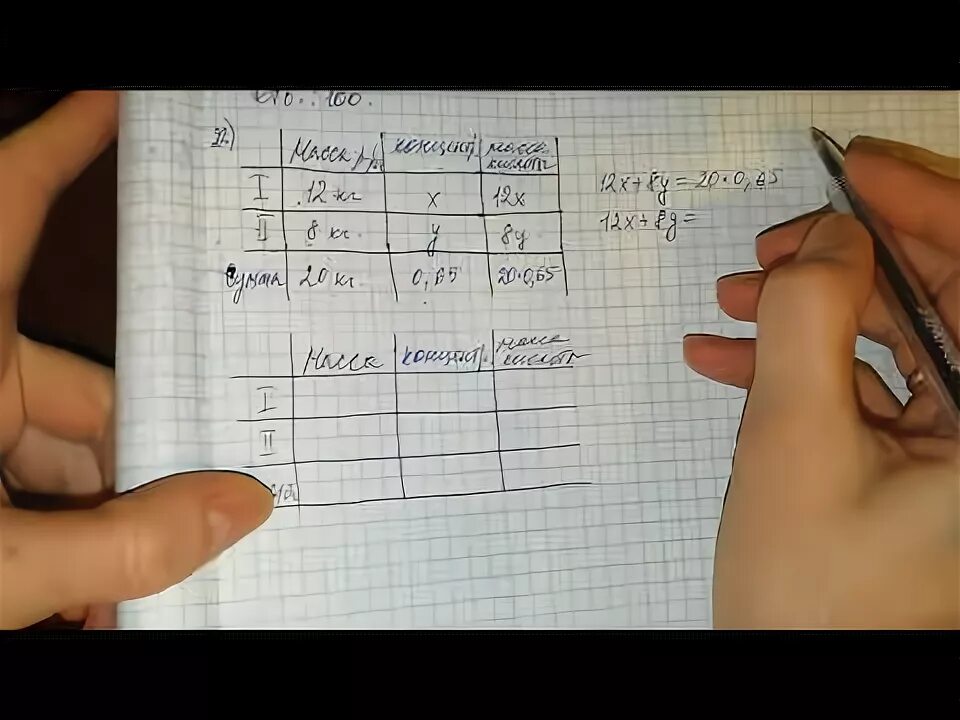 160.
Масса р-ра концент. масса кислоты
I 12 кг x 12x
II 8 кг. y 8y
Сумма 20 кг. 0,65 20•0,65
12x + 8y = 20•0,65
12x + 8y =
Масса концент. масса кислоты
I
II